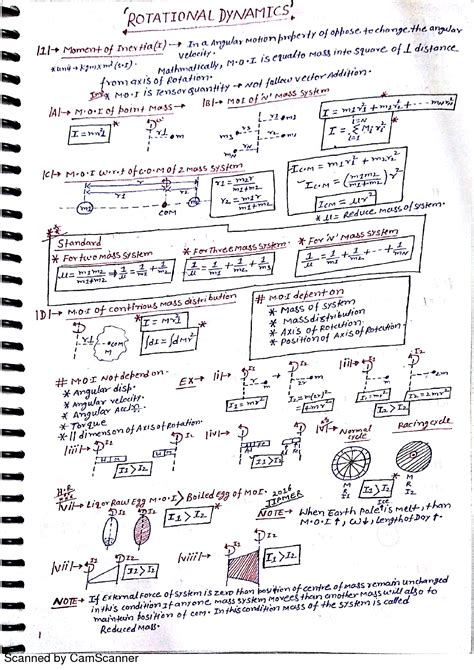 ROTATIONAL DYNAMICS
|2|→ Moment of Inertia(I) → In a Angular Motion property of oppose to change the angular velocity.
*unit → kgmxm² (S.I). Mathmatically, M.O.I is equal to Mass into square of ⊥ distance
from axis of Rotation.
M.O.I is Tensor quantity → Not follow vector Addition.
|A|→ M.O.I of point Mass → |B|→ MOI of 'N' Mass System
I = mr⊥²
m
m1
m2
m3
mN
I = m1r1² + m2r2² + ... mNrN²
I = Σ Miri²
|C|→ M.O.I w.r.t C.O.M of 2 Mass system
r
r1
r2
m1
COM
m2
r1 = m2r/m1+m2
r2 = m1r/m1+m2
ICM = m1r1² + m2r2²
ICM = (m1m2/m1+m2) r²
ICM = μr²
* μ = Reduce Mass of System.
Standard
* For two Mass system
* For Three Mass system
* For 'N' Mass System
μ = m1m2/m1+m2 ⇒ 1/μ = 1/m1 + 1/m2
1/μ = 1/m1 + 1/m2 + 1/m3
1/μ = 1/m1 + 1/m2 + ... + 1/mN
|D|→ M.O.I of continious Mass distribution
r⊥
COM
M
I = Mr⊥²
∫dI = ∫dMr²
# MOI depent on
* Mass of System
* Mass distribution
* Axis of Rotation
* Position of Axis of Rotation.
# M.O.I Not depend on
* Angular disp.
* Angular velocity.
* Angular Accn.
* Torque
* || dimension of Axis of Rotation.
EX → |i|→ |ii|→
I1 = mr²
I2 = m(2r)² = 4mr²
I1 = mr²
I2 = 2mr²
|iii|→
I1 > I2
|iv|→
I1 > I2
|v|→ Normal cycle
Racing cycle
I1 > I2
|vi|→ Liq or Raw Egg M.O.I > Boiled egg of MOI. 2016 JIPMER
I1 > I2
NOTE → When Earth Pole is melt, than
M.O.I ↑, ω↓, length of Day ↑.
|vii|→
I1 > I2
|viii|→
I1 > I2
NOTE → If External Force of System is zero than position of centre of mass remain unchanged
in this condition If anyone mass system moves than another Mass will also to
maintain position of COM. In this condition Mass of the System is called
Reduced Mass.
1
Scanned by CamScanner